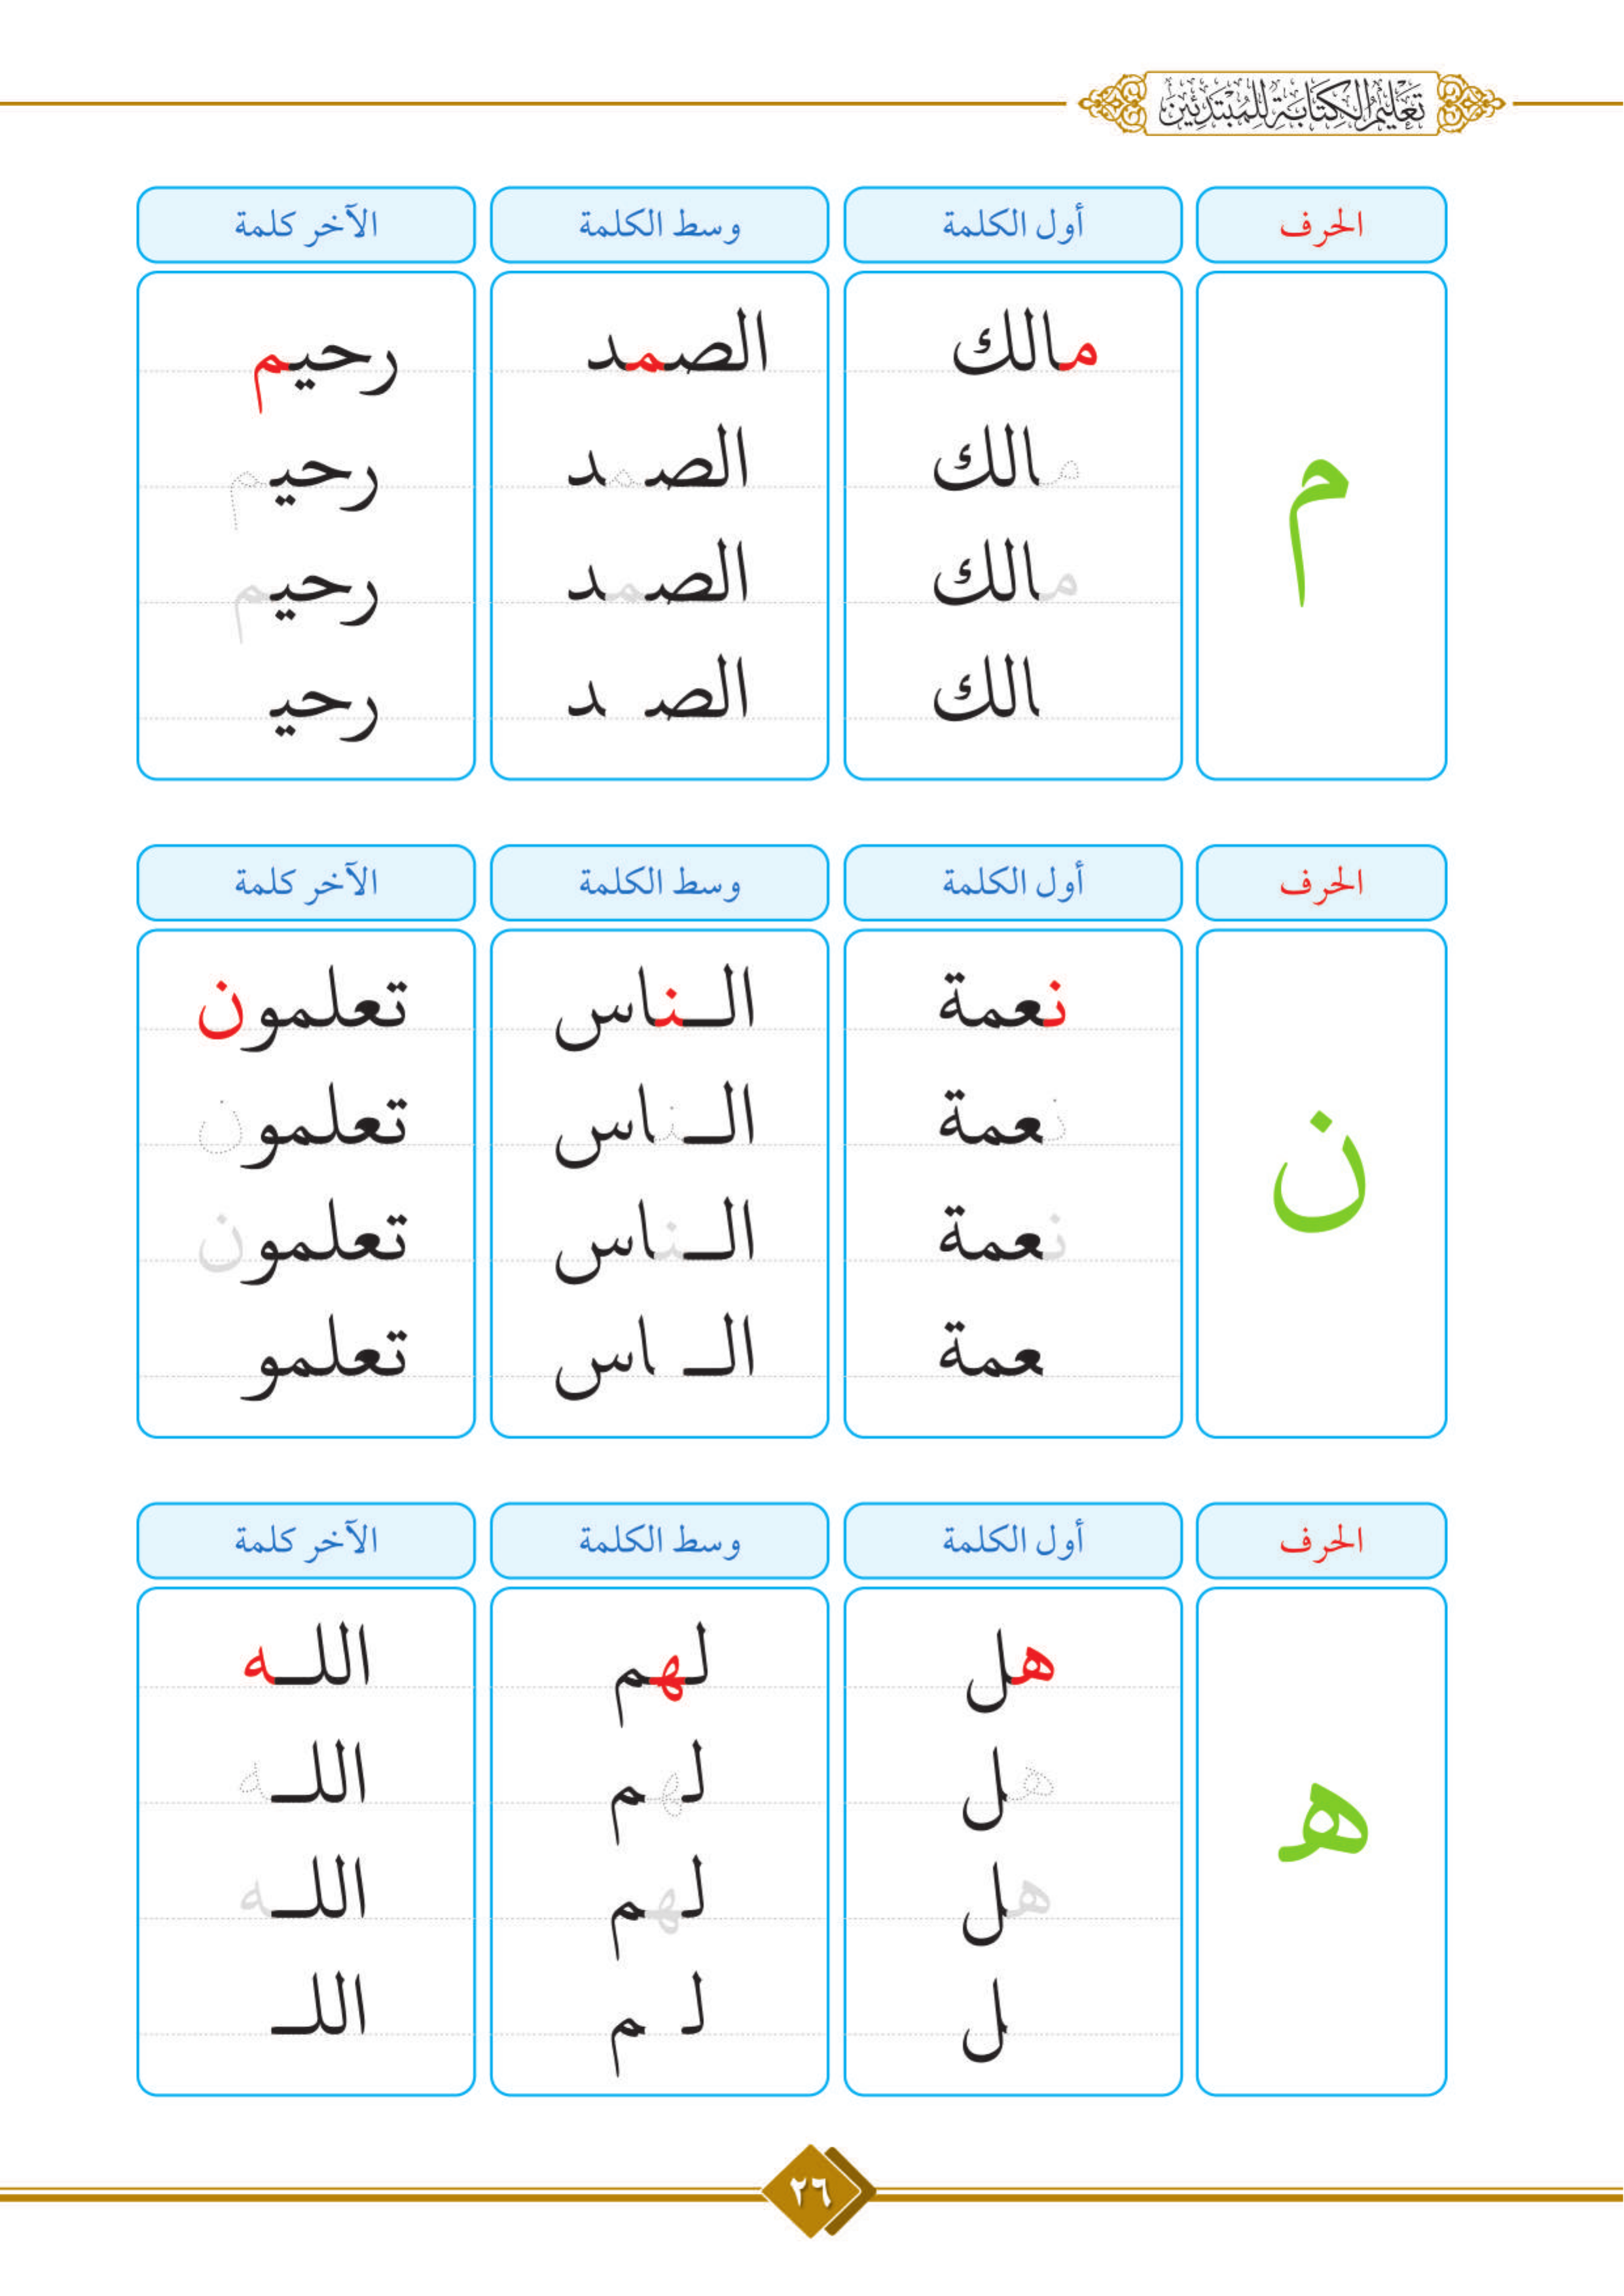 تَعْلِيمُ الْكِتَابَةِ لِلْمُبْتَدِئِينَ
الحرف أول الكلمة وسط الكلمة الآخر كلمة
م
مالك الصمد رحيم
مالك الصمد رحيم
مالك الصمد رحيم
ـالك الصـ ـد رحيـ
الحرف أول الكلمة وسط الكلمة الآخر كلمة
ن
نعمة الـناس تعلمون
نعمة الـناس تعلمون
نعمة الـناس تعلمون
ـعمة الـ ـاس تعلمو
الحرف أول الكلمة وسط الكلمة الآخر كلمة
هـ
هل لهم اللـه
هل لهم اللـه
هل لهم اللـه
ـل لـ ـم اللـ
٢٦